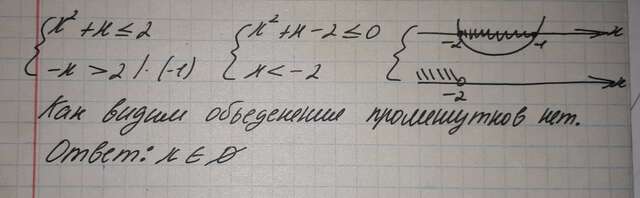 x² + x ≤ 2 x² + x - 2 ≤ 0 -2 -1 x
-x > 2 / · (-1) x < -2 -2 x
Как видим объеденения промежутков нет.
Ответ: x ∈ ∅